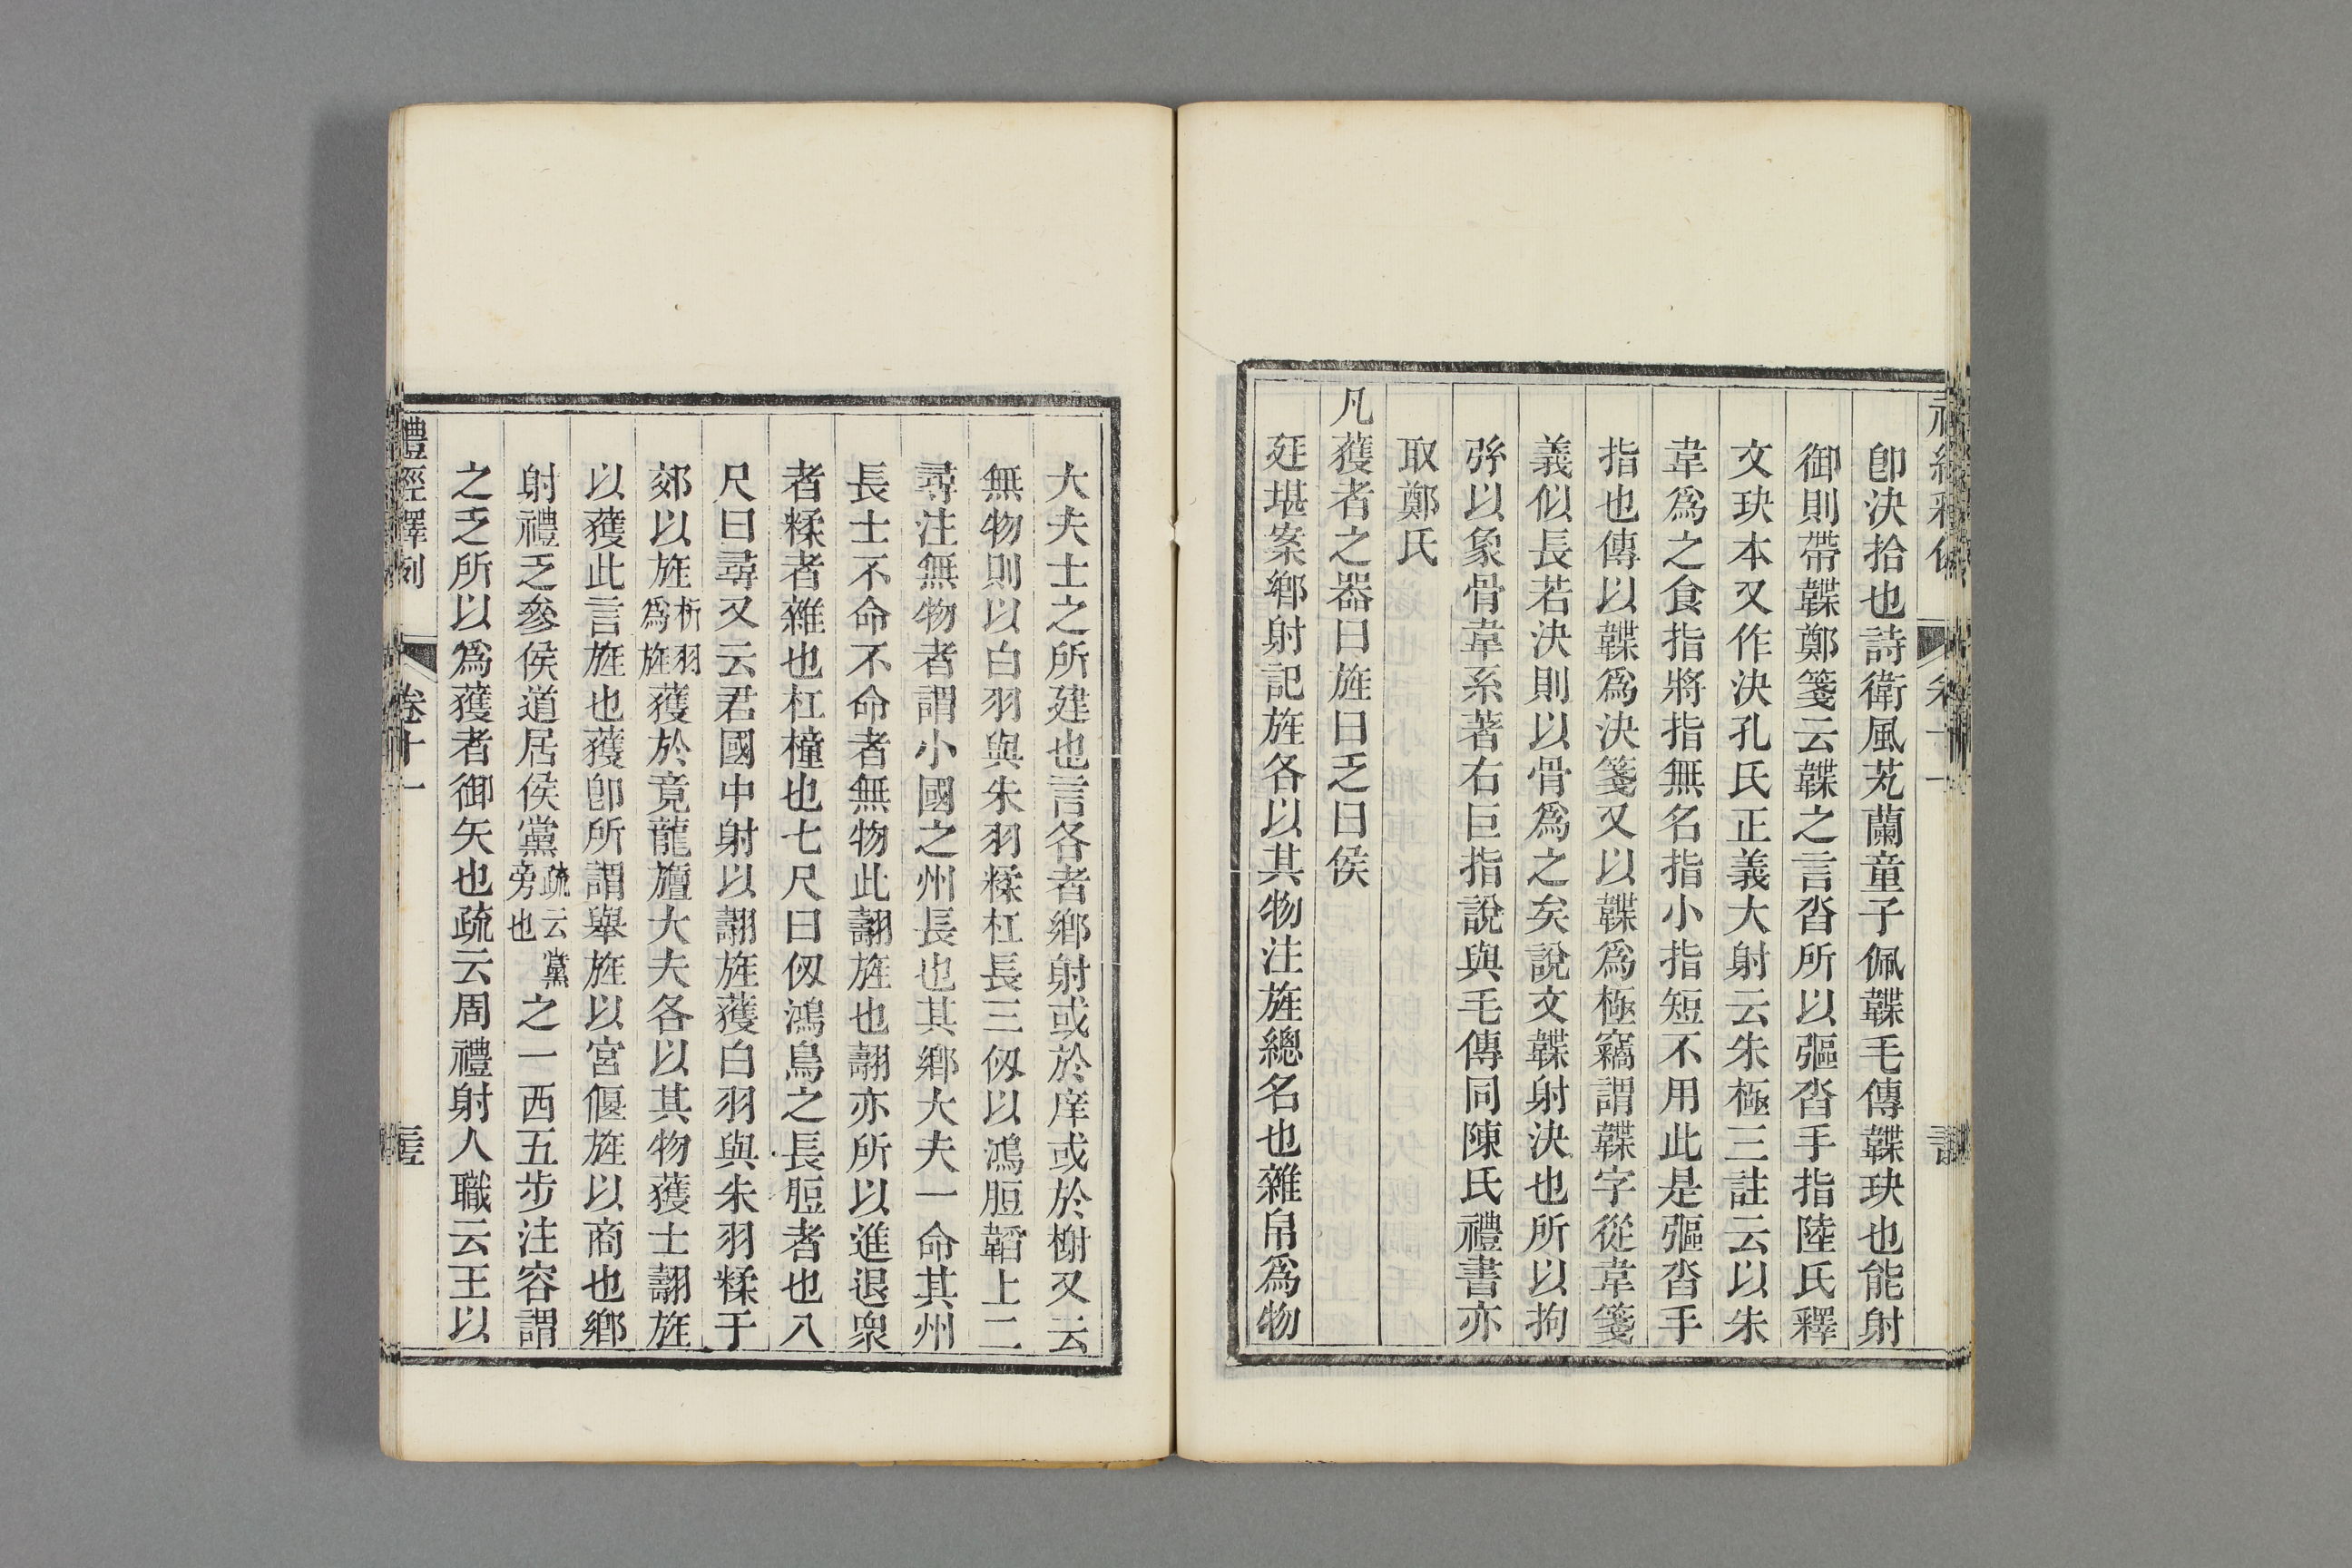 卽決拾也詩衛風芄蘭童子佩韘毛傳韘玦也能射
御則帶韘鄭箋云韘之言沓所以彄沓手指陸氏釋
文玦本又作決孔氏正義大射云朱極三註云以朱
韋爲之食指將指無名指小指短不用此是彄沓手
指也傳以韘爲決箋又以韘爲極竊謂韘字從韋箋
義似長若決則以骨爲之矣說文韘射決也所以拘
弦以象骨韋系著右巨指說與毛傳同陳氏禮書亦
取鄭氏
凡獲者之器曰旌曰乏曰侯
廷堪案鄉射記旌各以其物注旌總名也雜帛爲物
大夫士之所建也言各者鄉射或於庠或於榭又云
無物則以白羽與朱羽糅杠長三仞以鴻脰韜上二
尋注無物者謂小國之州長也其鄉大夫一命其州
長士不命不命者無物此翿旌也翿亦所以進退衆
者糅者雜也杠橦也七尺曰仞鴻鳥之長脰者也八
尺曰尋又云君國中射以翿旌獲白羽與朱羽糅于
郊以旌析羽爲旌獲於竟龍旜大夫各以其物獲士翿旌
以獲此言旌也獲卽所謂舉旌以宮偃旌以商也鄉
射禮乏參侯道居侯黨疏云黨旁也之一西五步注容謂
之乏所以爲獲者御矢也疏云周禮射人職云王以
禮經釋例
卷十一